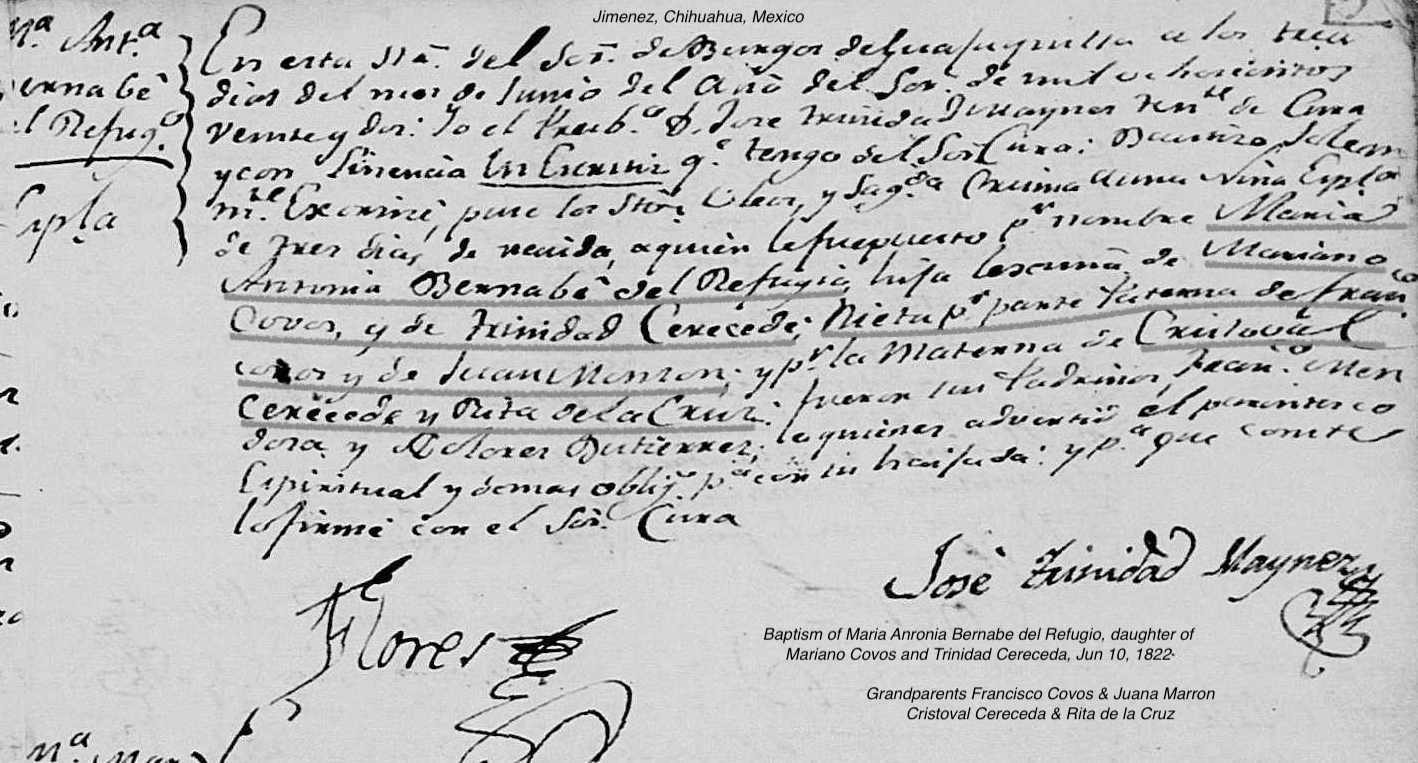 Jimenez, Chihuahua, Mexico
Mª. Antª
Bernabê
del Refugº.
Espla
En esta Stã. del Sor. de Burgos de Guajuquilla a los trece
dias del mes de Junio del Año del Sor. de mil ochocientos
veinte y dos: Yo el Presb.º D. Jose Trinidad Maynez Tente. de Cura
y con Lisencia In Escritiz q.e tengo del Sor. Cura: Bautizo Solem
mte. Exorcisé, puse los Stôs. Oleos, y Sagda Crisma a una Niña Española
de tres dias, de nacida, a quien le fue puesto pr nombre Maria
Antonia Bernabê del Refugio, hija lexmã de Mariano
Covos, y de Trinidad Cerecede; Nieta pr parte Paterna de Franco
covos y de Juana Marron; y pr la Materna de Cristoval
Cerecede y Rita de la Cruz: fueron sus Padrinos, Franco. Men
dosa y Dolores Gutierrez; a quienes advertí el parentesco
Espiritual y demas oblig.s pa con su haijada: y pa que conste
lo firmé con el Sor. Cura
José Trinidad Maynez
Flores
Baptism of Maria Anronia Bernabe del Refugio, daughter of
Mariano Covos and Trinidad Cereceda, Jun 10, 1822·
Grandparents Francisco Covos & Juana Marron
Cristoval Cereceda & Rita de la Cruz
Mª